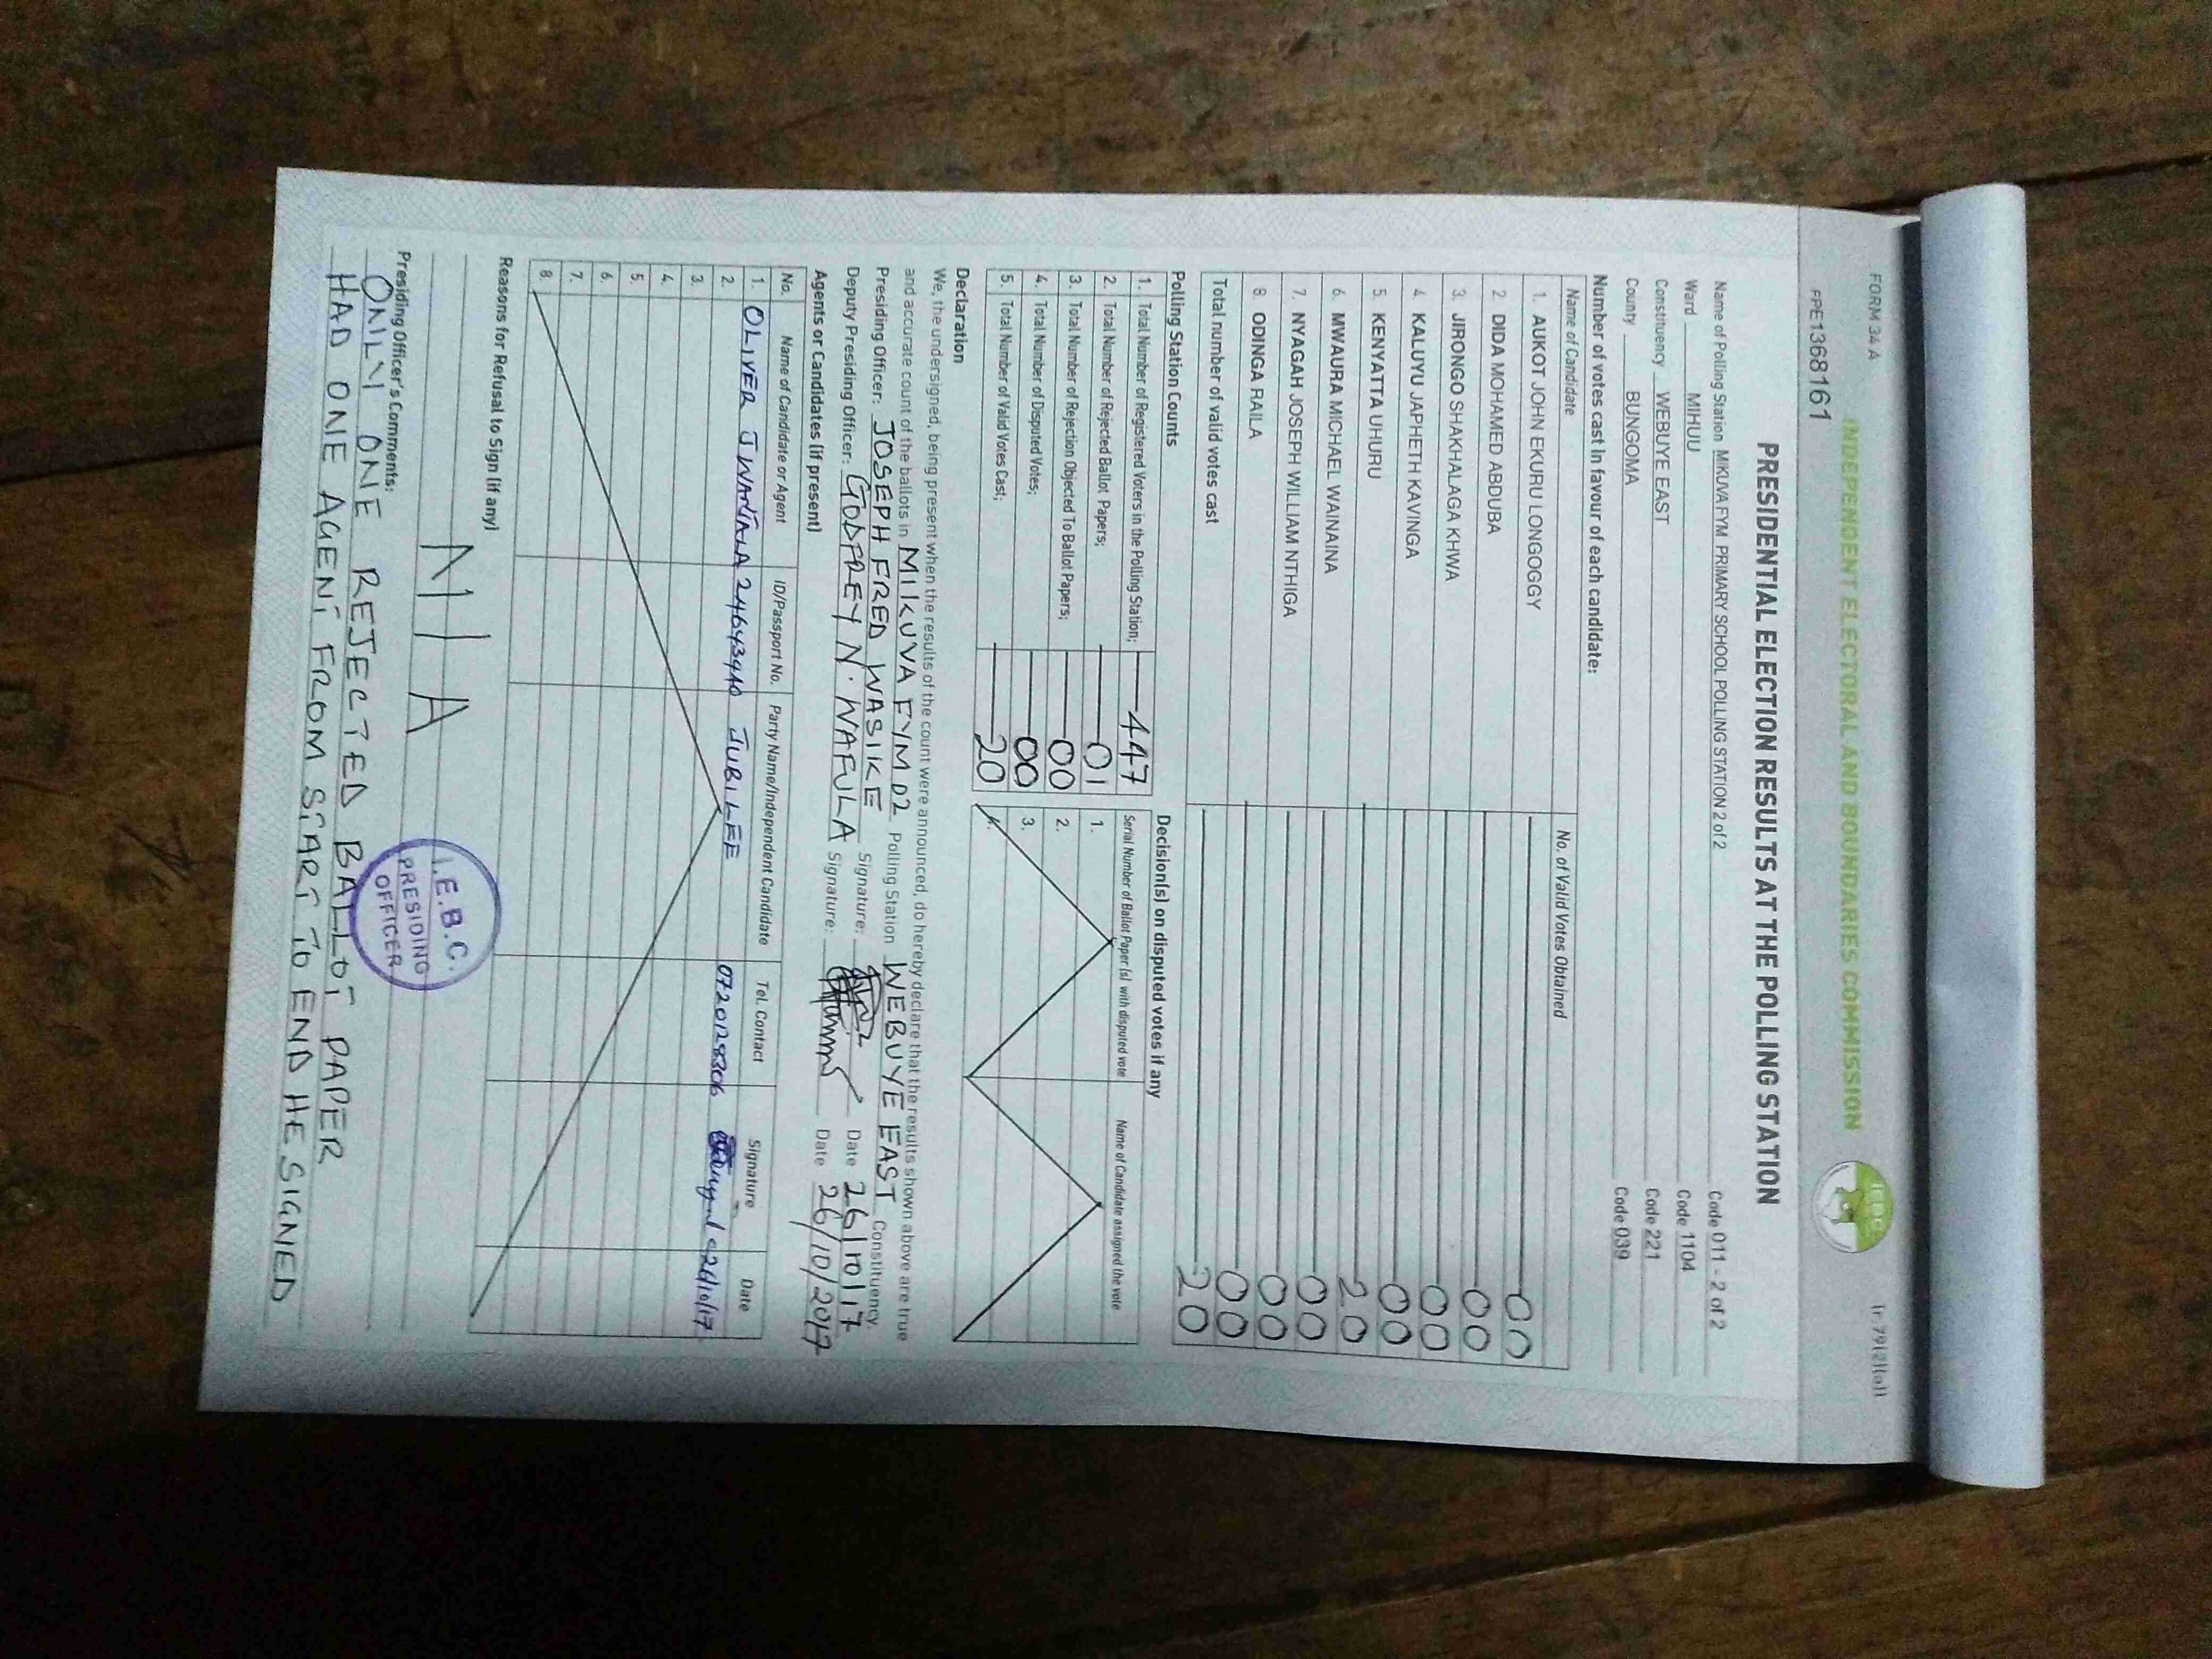 FORM 34 A
(r.79(2)(a))
INDEPENDENT ELECTORAL AND BOUNDARIES COMMISSION
IEBC
FPE1368161
PRESIDENTIAL ELECTION RESULTS AT THE POLLING STATION
Name of Polling Station MIKUVA FYM PRIMARY SCHOOL POLLING STATION 2 of 2 Code 011 - 2 of 2
Ward MIHUU Code 1104
Constituency WEBUYE EAST Code 221
County BUNGOMA Code 039
Number of votes cast in favour of each candidate:
Name of Candidate No. of Valid Votes Obtained
1. AUKOT JOHN EKURU LONGOGGY 00
2. DIDA MOHAMED ABDUBA 00
3. JIRONGO SHAKHALAGA KHWA 00
4. KALUYU JAPHETH KAVINGA 00
5. KENYATTA UHURU 20
6. MWAURA MICHAEL WAINAINA 00
7. NYAGAH JOSEPH WILLIAM NTHIGA 00
8. ODINGA RAILA 00
Total number of valid votes cast 20
Polling Station Counts
1. Total Number of Registered Voters in the Polling Station; 447
2. Total Number of Rejected Ballot Papers; 01
3. Total Number of Rejection Objected To Ballot Papers; 00
4. Total Number of Disputed Votes; 00
5. Total Number of Valid Votes Cast; 20
Decision(s) on disputed votes if any
Serial Number of Ballot Paper (s) with disputed vote Name of Candidate assigned the vote
1.
2.
3.
4.
Declaration
We, the undersigned, being present when the results of the count were announced, do hereby declare that the results shown above are true
and accurate count of the ballots in MIKUVA FYM 02 Polling Station WEBUYE EAST Constituency.
Presiding Officer: JOSEPH FRED WASIKE Signature: Date 26/10/17
Deputy Presiding Officer: GODFREY N. WAFULA Signature: Date 26/10/2017
Agents or Candidates (if present)
No. Name of Candidate or Agent ID/Passport No. Party Name/Independent Candidate Tel. Contact Signature Date
1. OLIVER JWANALA 24643940 JUBILEE 0720128306 26/10/17
2.
3.
4.
5.
6.
7.
8.
Reasons for Refusal to Sign (if any)
N/A
Presiding Officer's Comments:
ONLY ONE REJECTED BALLOT PAPER
HAD ONE AGENT FROM START TO END HE SIGNED
I.E.B.C.
PRESIDING
OFFICER